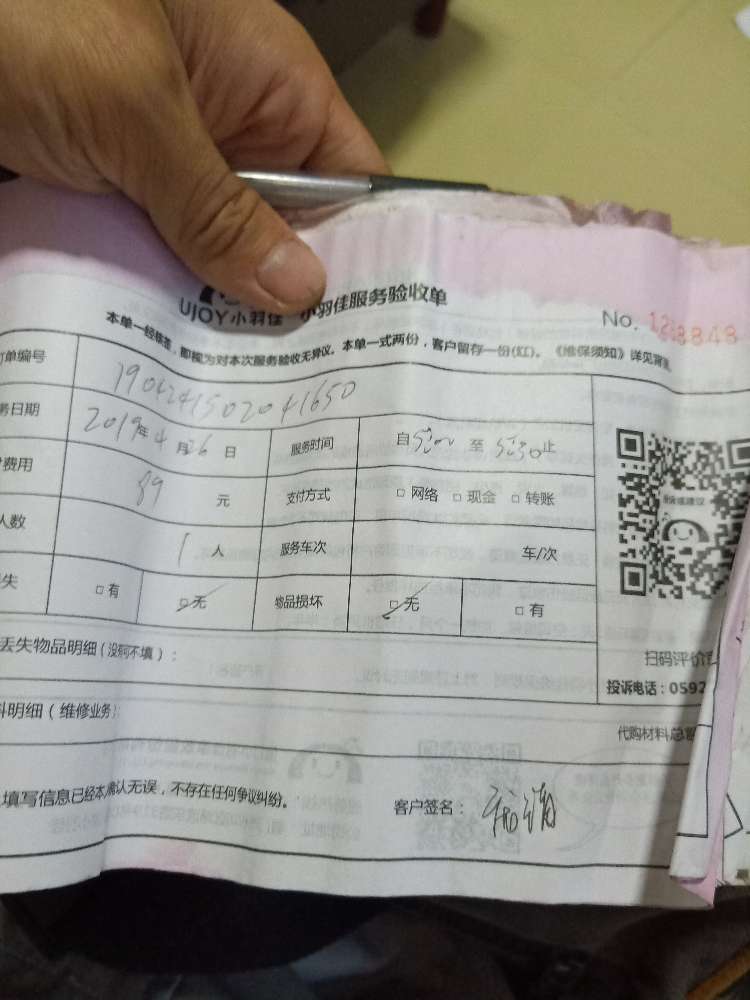 UJOY小羽佳 小羽佳服务验收单
No. 1288848
本单一经核签，即视为对本次服务验收无异议。本单一式两份，客户留存一份(红)。《维保须知》详见背
单编号 1904241502041650
务日期 2019年4月26日 服务时间 自5:00至5:30止
费用 89元 支付方式 □网络 □现金 □转账
人数 1人 服务车次 车/次
失 □有 □无 物品损坏 □无 □有
丢失物品明细（没有不填）：
料明细（维修业务）：
扫码评价
投诉电话：0592
代购材料总
填写信息已经本 确认无误，不存在任何争议纠纷。 客户签名：